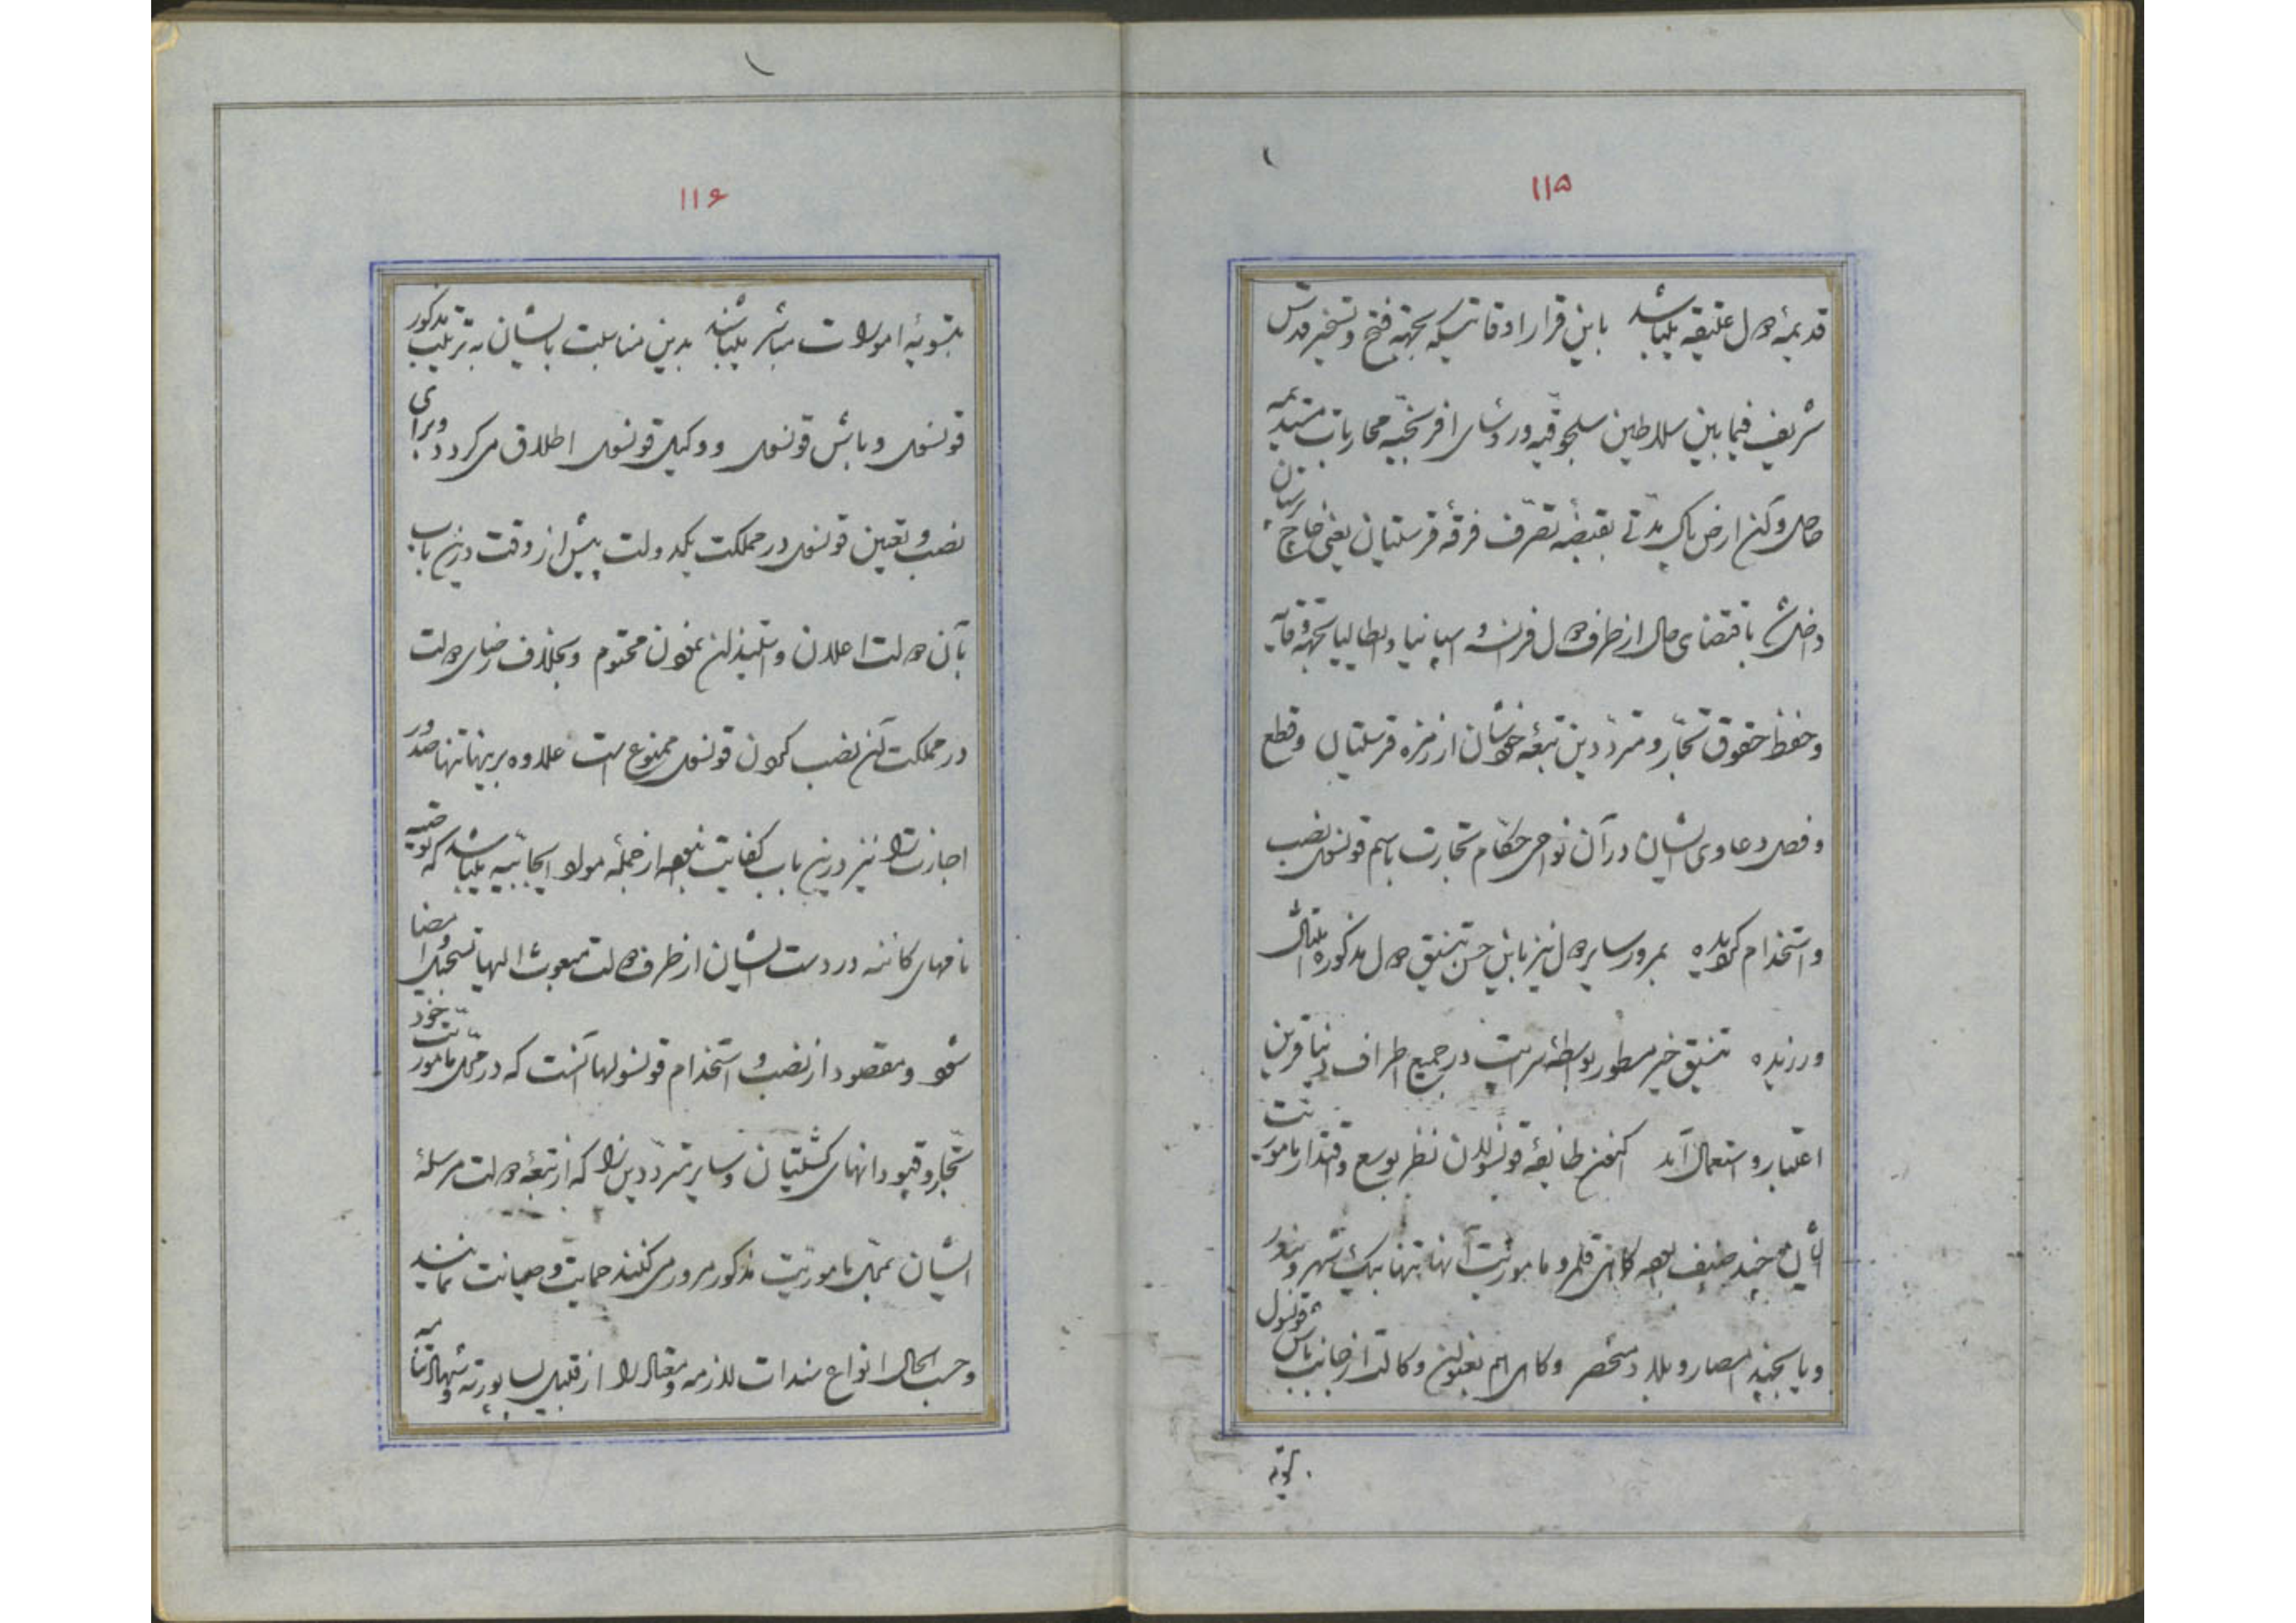 ۱۱۵
قدیمهٔ دول عتیقه میباشد باین قرار اوقاتیکه بجهة فتح و تسخیر قدس
شریف فیمابین سلاطین سلجوقیه و رؤسای افرنجیه محاربات عدیده
حاصل و آن ارض پاک مدتی بقبضهٔ تصرف فرقهٔ قرستیان یعنی حاج پرستان
داخل شد باقتضای حال از طرف دول فرانسه و اسپانیا و ایطالیا بجهة وقایه
و حفظ حقوق تجار و مترددین تبعهٔ خودشان از زمره قرستیان و قطع
و فصل دعاوی ایشان در آن نواحی حکام تجارت باسم قونسول نصب
و استخدام کردیده بمرور سایر دول نیز باین حسن تنسیق دول مذکوره امتثال
ورزیده تنسیق خیر مسطور بواسطهٔ سرایت در جمیع اطراف دنیا قرین
اعتبار و استعمال آمد اکنون طایفهٔ قونسولان نظر بوسع و اقتدار ماموریت
ایشان چند صنف بوده گاهی قلمرو ماموریت آنها تنها بیک شهر و بندر
و یا بچند امصار و بلاد منحصر و گاهی هم بعنوان وکالت از جانب باش قونسول
بتسویه
۱۱۶
بتسویهٔ امورات مباشر میباشند بدین مناسبت بایشان به ترتیب مذکور
قونسول و باش قونسول و وکیل قونسول اطلاق میکردد و برای
نصب و تعیین قونسول در مملکت یکدولت پیش از وقت درین باب
بآن دولت اعلان و استیذان نمودن محتوم و بخلاف رضای دولت
در مملکت آن نصب کردن قونسول ممنوع است علاوه بر اینها تنها صدور
اجازت را نیز درین باب کفایت نبوده از جمله مواد ایجابیه میباشد که توصیه
نامهای کائنه در دست ایشان از طرف دولت مبعوث الیها تسجیل و امضا
شود و مقصود از نصب و استخدام قونسولها آنست که در محل ماموریت خود
تجار و قپودانهای کشتیان و سایر مترددین را که از تبعهٔ دولت مرسلهٔ
ایشان بمحل ماموریت مذکور مرور میکنند حمایت و صیانت نمایند
و حسب الحال انواع سندات لازمه و مقاله را از قبیل پساپورته و شهادتنامه